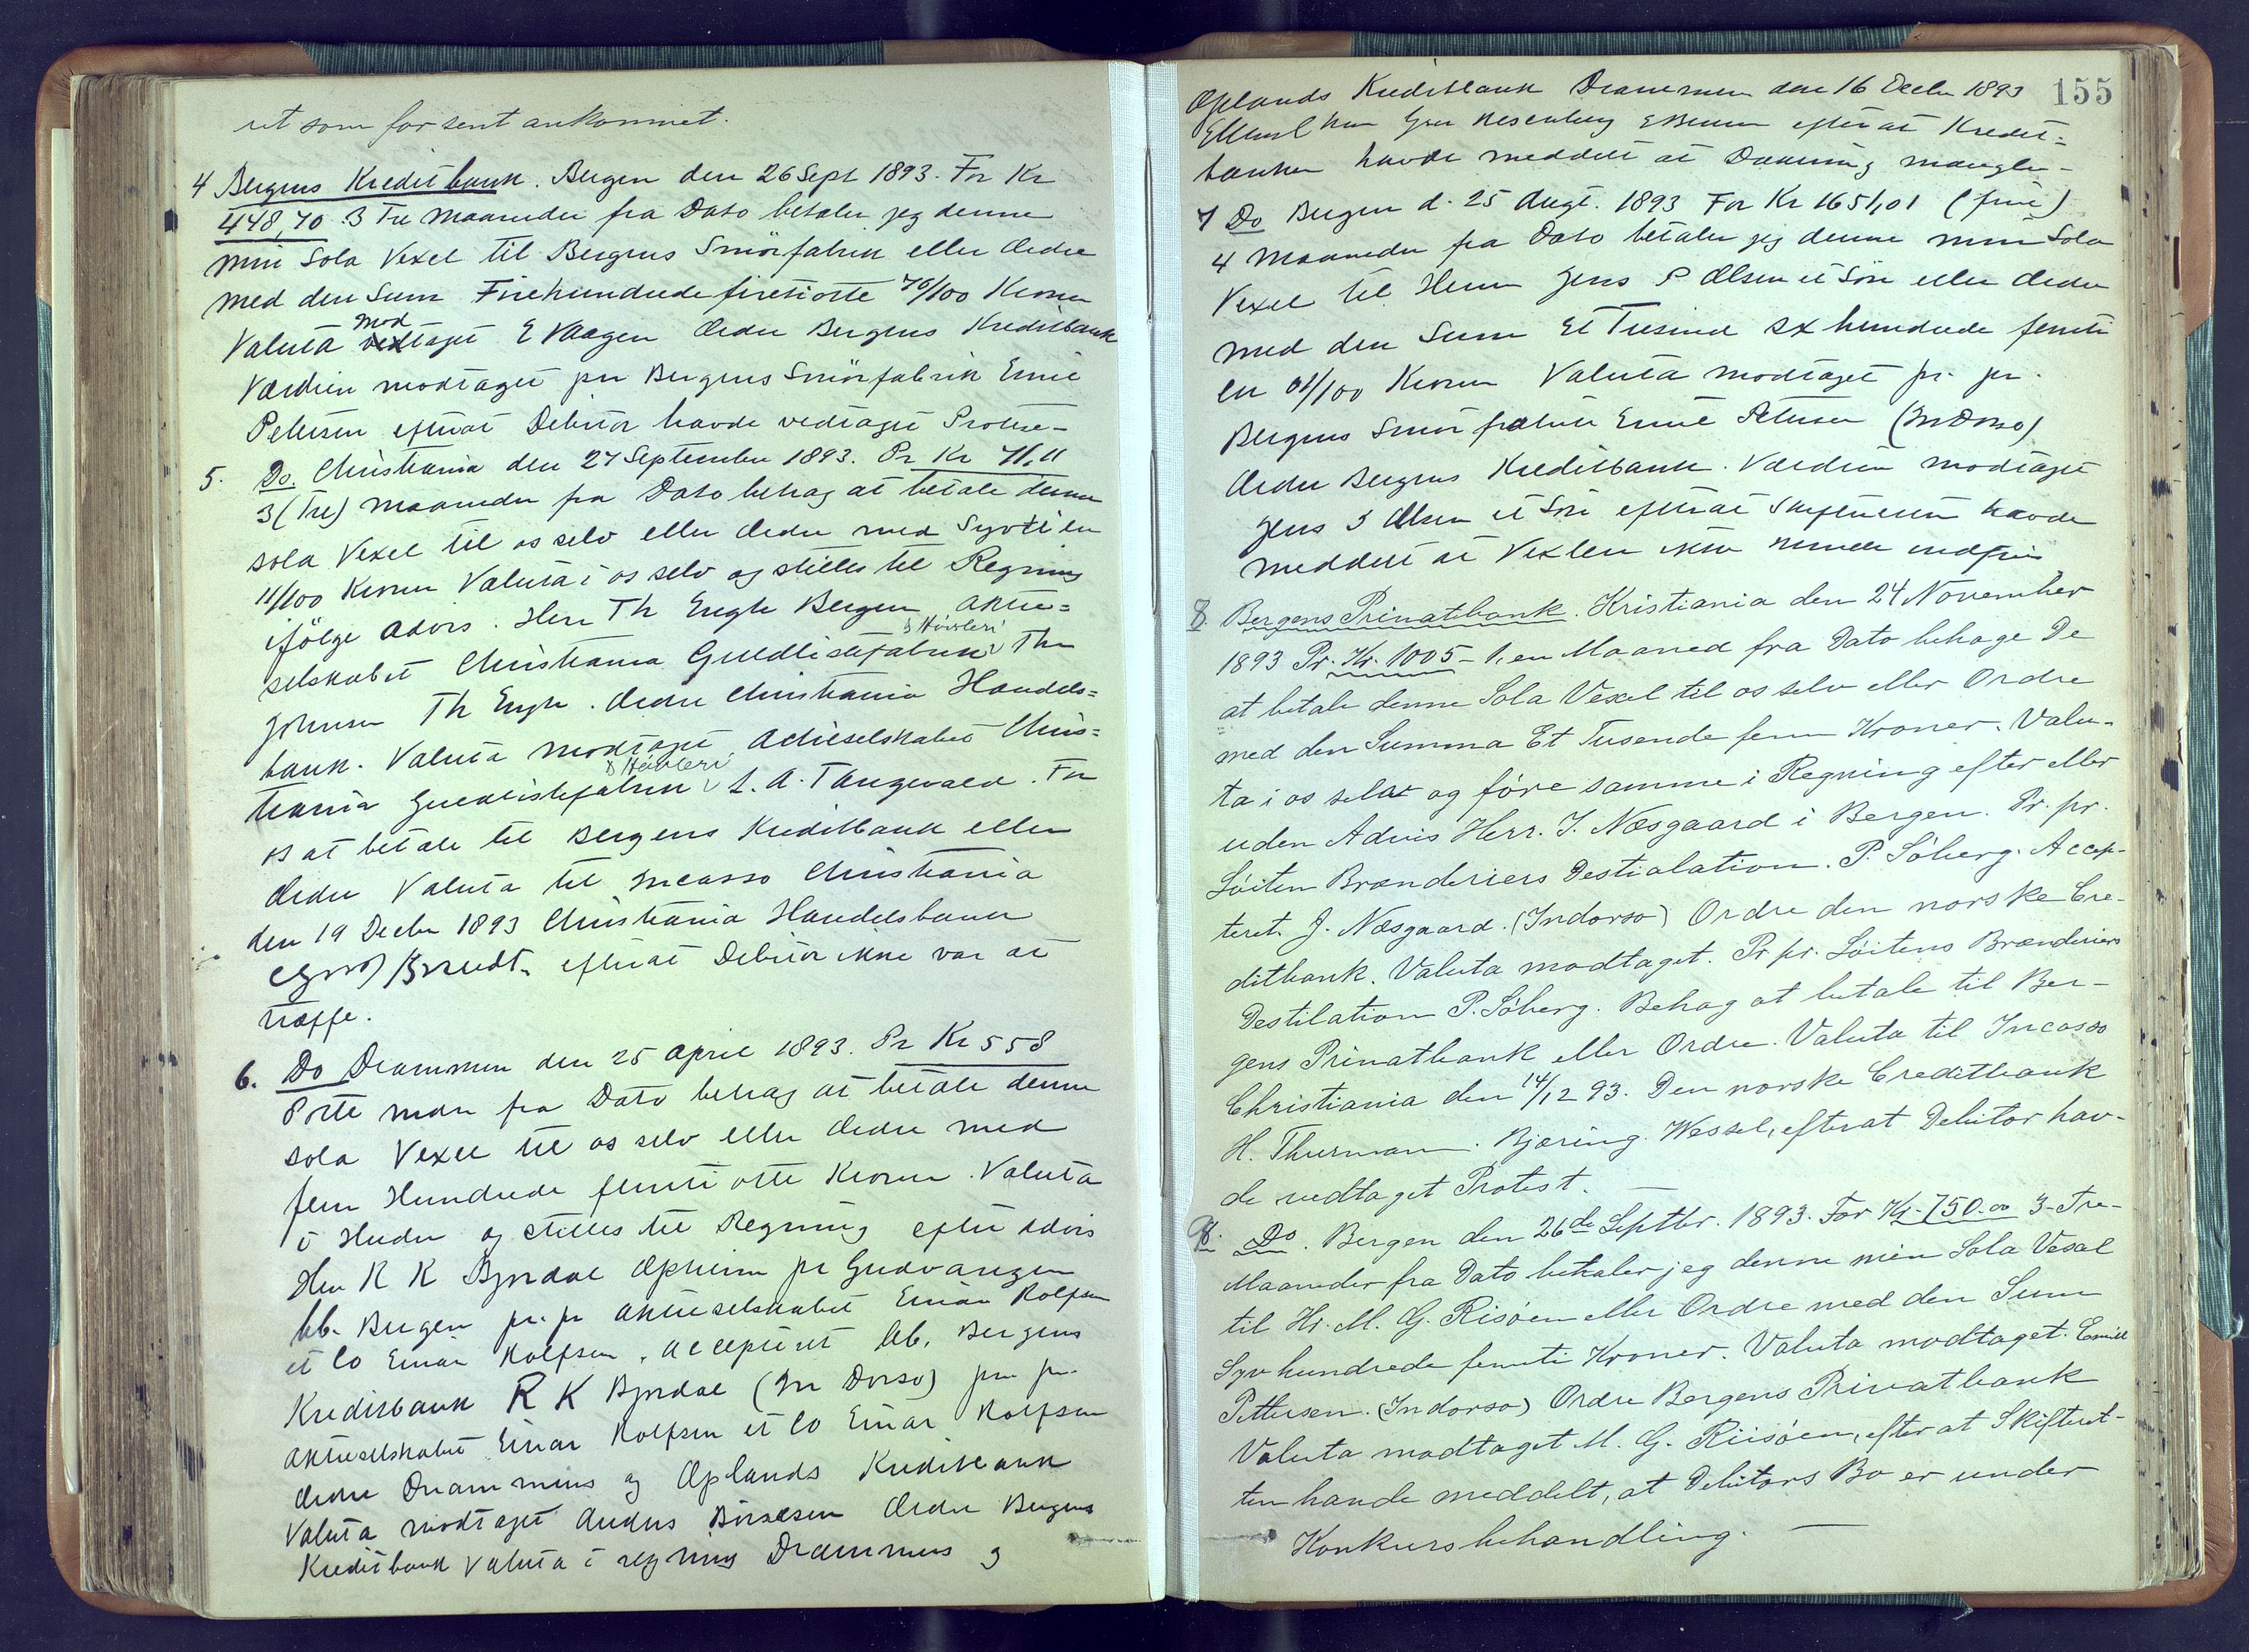 ret som for sent ankommet.
4 Bergens Kreditbank. Bergen den 26 Sept 1893. For Kr
448,70. 3 Tre Maaneder fra Dato betaler jeg denne
min Sola Vexel til Bergens Smörfabrik eller Ordre
med den Sum Firehundrede firetiotte 70/100 Kroner
Valuta modtaget E Vaagen Ordre Bergens Kreditbank
Værdien modtaget per Bergens Smörfabrik Emil
Pettersen efterat Debitor havde vedtaget Protest-
5. Do. Christiania den 27 September 1893. Pr Kr 71,11
3 (Tre) Maaneder fra Dato behag at betale denne
sola Vexel til os selv eller Ordre med Syvti en
11/100 Kroner Valuta i os selv og stilles til Regning
ifölge advis. Herr Th Engh Bergen Aktie=
selskabet Christiania Guldlistefabrik & Høvleri Th
Johnsen Th Engh. Ordre Christiania Handels=
bank. Valuta modtaget, Actieselskabet Chris=
tiania Guldlistefabrik & Høvleri L. A. Tangevald. For
os at betale til Bergens Kreditbank eller
Ordre Valuta til Incasso Christiania
den 19 Decbr 1893 Christiania Handelsbank
efterat Debitor ikke var at
træffe.
6. Do Drammen den 25 April 1893. Pr Kr 558
Otte mdr fra Dato behag at betale denne
sola Vexel til os selv eller Ordre med
fem Hundrede femti otte Kroner. Valuta
i Hænder og stilles til Regning efter advis
Herr R K Bjørdal Opheim pr Gudvangen
bb. Bergen pr. pr Aktieselskabet Einar Rolfsen
et Co Einar Rolfsen. Accepteret bb. Bergens
Kreditbank R K Bjørdal (In Dorso) pr. pr.
Aktieselskabet Einar Rolfsen et Co Einar Rolfsen
Ordre Drammens og Oplands Kreditbank
Valuta modtaget Ordre Bergens
Kreditbank Valuta i regning Drammens og
155
Oplands Kreditbank Drammen den 16 Decbr 1893
efterat Kredit=
banken havde meddelt at Dækning mangler-
7 Do Bergen d. 25 Augt. 1893 For Kr 1651,01 (fire)
4 Maaneder fra Dato betaler jeg denne min Sola
Vexel til Herrer Jens S Olsen et Sön eller Ordre
med den Sum Et Tusind sex hundrede femti
en 01/100 Kroner Valuta modtaget pr. pr.
Bergens Smörfabrik Emil Pettersen (In Dorso)
Ordre Bergens Kreditbank. Værdien modtaget
Jens S Olsen et Sön efterat Skifteretten havde
meddelt at Vexlen ikke vilde indfries
8. Bergens Privatbank. Kristiania den 24 November
1893 Pr. Kr. 1005 - 1, en Maaned fra Dato behage De
at betale denne Sola Vexel til os selv eller Ordre
med den Summa Et Tusende fem Kroner. Valu-
ta i os selv og före samme i Regning efter eller
uden Advis Herr. J. Næsgaard i Bergen. Pr. pr.
Löiten Brænderiers Destialation. P. Söberg. Accep-
teret. J. Næsgaard. (Indorso) Ordre den norske Cre-
ditbank. Valuta modtaget. Pr pr. Löitens Brænderiers
Destilation P. Söberg. Behag at betale til Ber-
gens Privatbank eller Ordre. Valuta til Incasso
Christiania den 14/12 93. Den norske Creditbank
H. Thurmann. Bjæring. Wessel, efterat Debitor hav-
de vedtaget Protest. —
9. Do. Bergen den 26de Septbr. 1893. For Kr. 750.00 3-Tre-
Maaneder fra Dato betaler jeg denne min Sola Vexel
til Hr. M. G. Risöen eller Ordre med den Sum
Syv hundrede femti Kroner. Valuta modtaget. Emil
Pettersen. (Indorso) Ordre Bergens Privatbank
Valuta modtaget M. G. Riisöen, efter at Skifteret-
ten havde meddelt, at Debitors Bo er under
Konkursbehandling. —